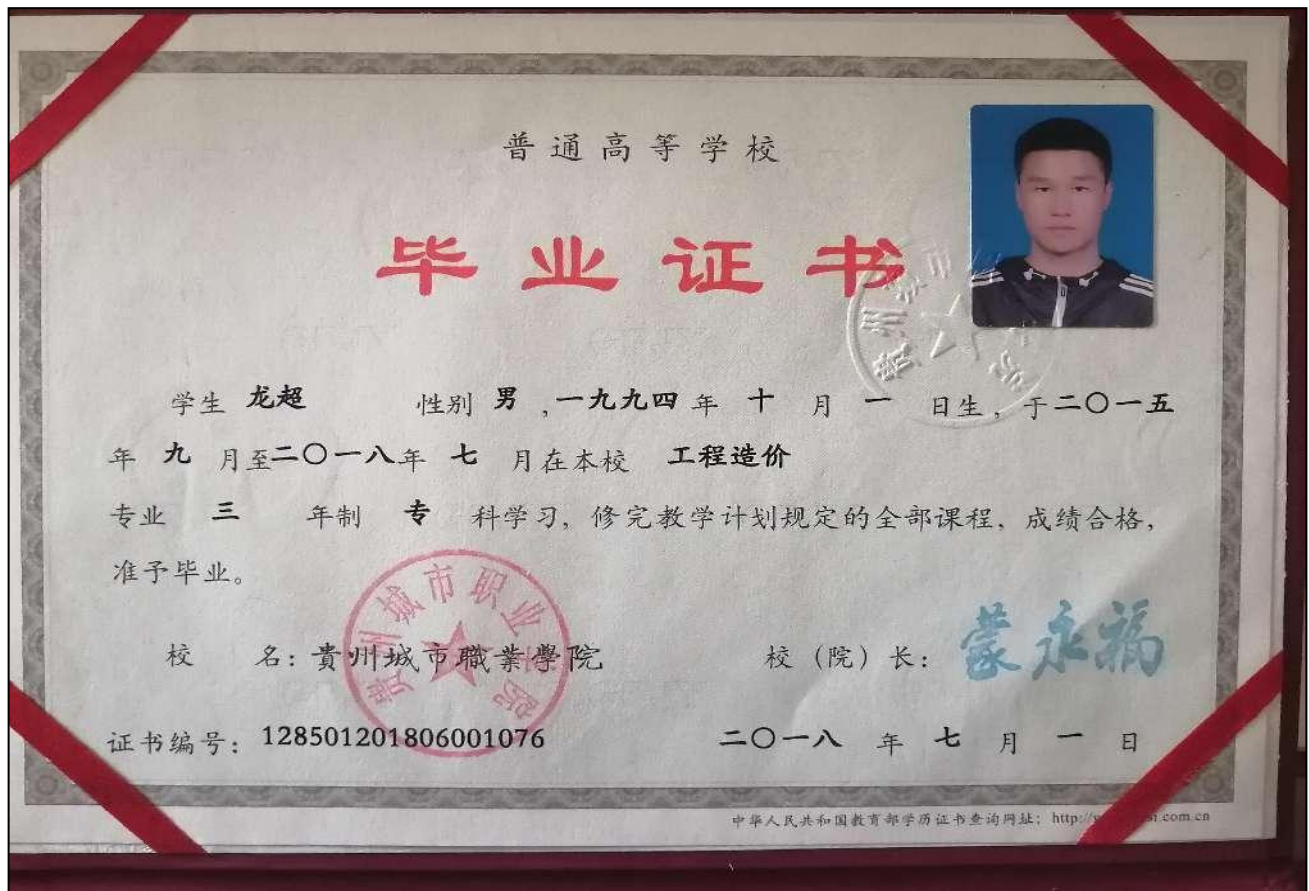 普通高等学校
毕业证书
学生 龙超 性别 男 ,一九九四 年 十 月 一 日生, 于二〇一五
年 九 月至二〇一八年 七 月在本校 工程造价
专业 三 年制 专 科学习, 修完教学计划规定的全部课程, 成绩合格,
准予毕业。
贵州城市职业学院
校 名: 貴州城市職業學院 校（院）长: 蒙永福
证书编号: 128501201806001076 二〇一八 年 七 月 一 日
中华人民共和国教育部学历证书查询网址: http://
si.com.cn